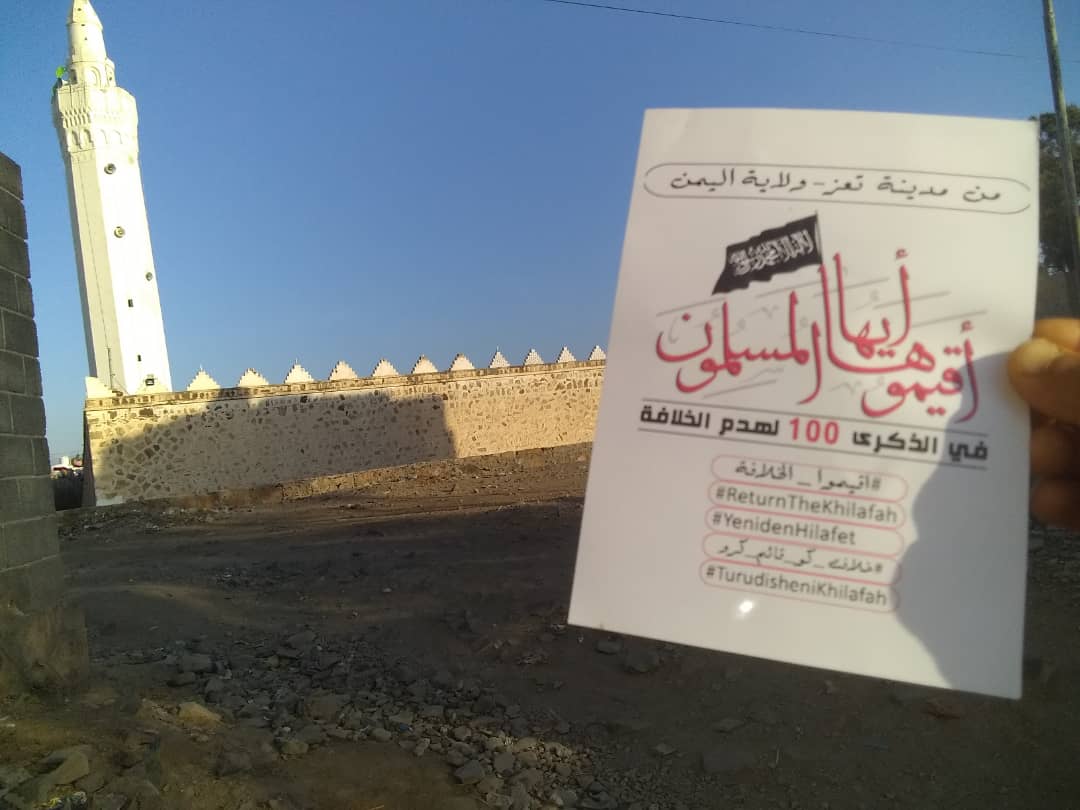 من مدينة تعز - ولاية اليمن
لا إله إلا الله محمد رسول الله
أقيموها أيها المسلمون
في الذكرى 100 لهدم الخلافة
#اقيموا_الخلافة
#ReturnTheKhilafah
#YenidenHilafet
#خلافت_کو_قائم_کرو
#TurudisheniKhilafah